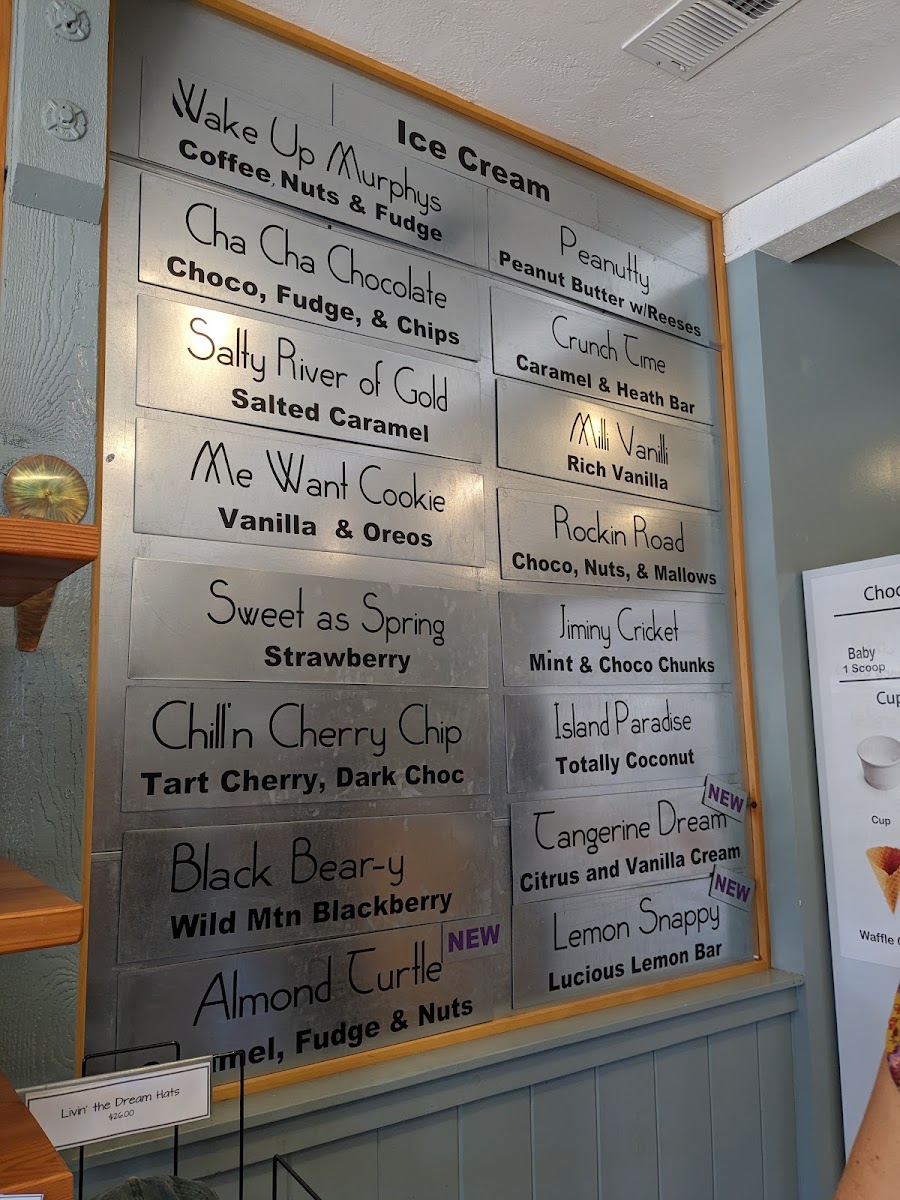 Ice Cream
Wake Up Murphys
Coffee, Nuts & Fudge
Cha Cha Chocolate
Choco, Fudge, & Chips
Salty River of Gold
Salted Caramel
Me Want Cookie
Vanilla & Oreos
Sweet as Spring
Strawberry
Chill'n Cherry Chip
Tart Cherry, Dark Choc
Black Bear-y
Wild Mtn Blackberry
NEW
Almond Turtle
mel, Fudge & Nuts
Peanutty
Peanut Butter w/Reeses
Crunch Time
Caramel & Heath Bar
Milli Vanilli
Rich Vanilla
Rockin Road
Choco, Nuts, & Mallows
Jiminy Cricket
Mint & Choco Chunks
Island Paradise
Totally Coconut
NEW
Tangerine Dream
Citrus and Vanilla Cream
NEW
Lemon Snappy
Lucious Lemon Bar
Choo
Baby
1 Scoop
Cup
Cup
Waffle
Livin' the Dream Hats
$26.00